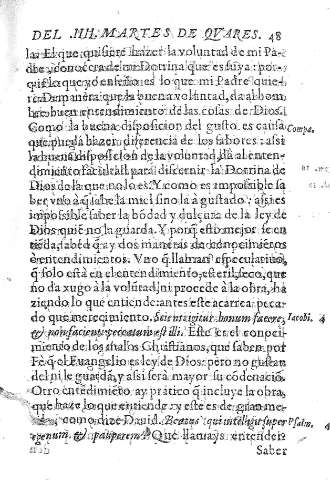 DEL .IIII. MARTES DE QVARES. 48
las El que quisiere hazer la voluntad de mi Pa-
dre, conocera de mi Dotrina que es suya: por-
que lo que yo enseño es lo que mi Padre quie-
re. De manera que la buena voluntad, da al hom
bre buen entendimiento de las cosas de Dios.
Como la buena disposicion del gusto es causa
que pueda hazer diferencia de los sabores: assi
la buena disposicion de la voluntad, da al enten-
dimiento facilidad para discernir la Dotrina de
Dios de la que no lo es. Y como es impossible sa
ber vno a q̃ sabe la miel sino la à gustado: assi es
impossible saber la bõdad y dulçura de la ley de
Dios quiẽ no la guarda. Y porq̃ esto mejor se en
tiẽda, sabed q̃ ay dos maneras de conocimiẽtos
ò entendimiẽtos. Vno q̃ llaman especulatiuo,
q̃ solo està en el entendimiẽto, esteril, seco, que
no da xugo à la volũtad, ni procede à la obra, ha
ziendo lo que entiende: antes este acarrea peca-
do que merecimiento. Scienti igitur bonum facere,
& non facienti, peccatum est illi. Este es el conoci-
miento de los malos Christianos, que saben por
Fè q̃ el Euangelio es ley de Dios: pero no gustan
del ni le guardã, y assi serà mayor su cõdenaciõ.
Otro entẽdimiẽto ay pratico q̃ incluye la obra,
que haze lo que entiende: y este es de gran me-
como dize Dauid. Beatus qui intelligit super
egenum, & pauperem. Que llamays entender?
Saber
Compa.
Iacobi. 4
Psalm.